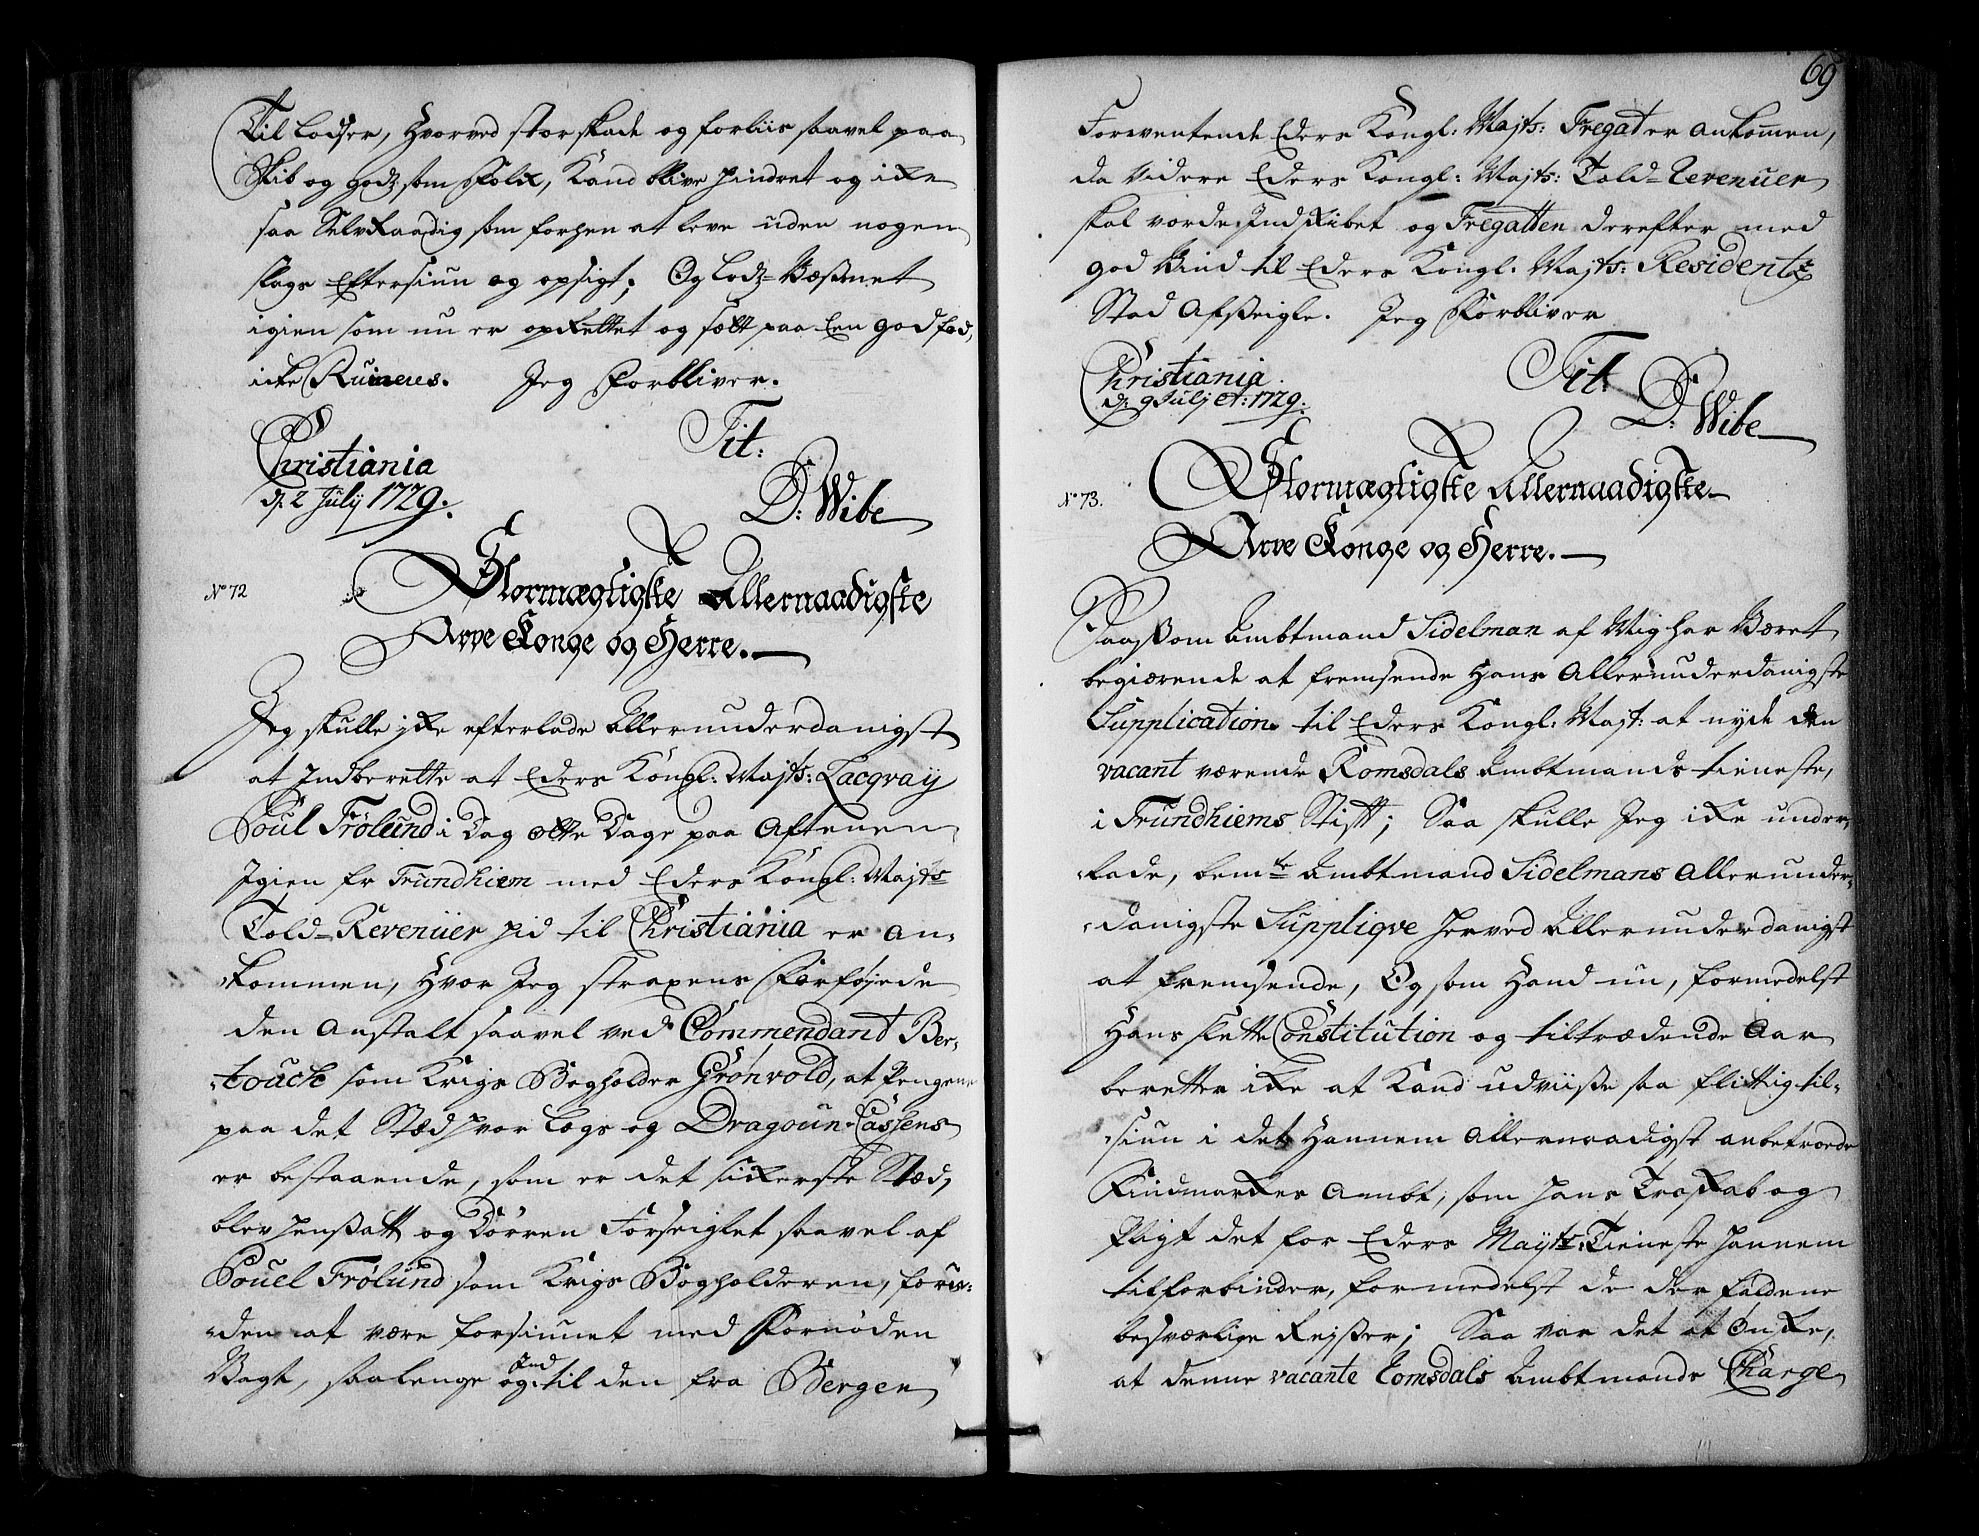 Til Lodser, Hvorved stor skade og forliis saavel paa
Skib og godz som Folck, Kand blive hindret og icke
saa Selvraadig som forhen at leve uden nogen
slags Eftersiun og opsigt; Og Lodz-Væßenet
igien som nu er oprettet og satt paa Een god fod,
icke Ruineres. Jeg Forbliver.
Christiania
d. 2 July 1729.
Tit:
D: Wibe
No 72
Stormægtigste Allernaadigste
Arve Konge og Herre.
Jeg skulle icke efterlade Allerunderdanigst
at Indberette at Eders Kongl: Majts: Lacqvay
Poul Frölund i Dag otte Dage paa Aftenen
Igien fr Trundhiem med Eders Kongl: Majts
Told-Revenüer hid til Christiania er An-
kommen, Hvor Jeg straxens Forföjede
den Anstalt saavel ved Commendant Ber-
touch som Krigs Bogholder Grönvold, at Pengene
paa det Stæd hvor Logs og Dragoun-Cassens
er bestaaende, som er det sickerste Stæd,
blev henßatt og Dörren Forseiglet saavel af
Pouel Frölund som Krigs Bogholderen, foru-
den at være forsiunet med Fornöden
Vagt, saalenge og Ind-til den fra Bergen
69
Forventende Eders Kongl: Majts: Fregat er ankommen,
da videre Eders Kongl: Majts: Told-Revenuer
skal vorde Indskibet og Fregatten derefter med
god Vind til Eders Kongl. Majts: Residentz
Stad Afßeigle. Jeg Forbliver
Christiania
d. 9 Julj A: 1729.
Tit:
D: Wibe
No 73.
Stormægtigste Allernaadigste
Arve Konge og Herre.
Saaßom Ambtmand Sidelman af Mig har Været
begiærende at fremsende Hans Allerunderdanigste
Supplication til Eders Kongl: Majt: at nyde den
vacant værende Romsdals Ambtmands tieneste,
i Trundhiems Stift; Saa skulle Jeg icke under-
lade, bemte Ambtmand Sidelmans Allerunder-
danigste Suppliqve herved Allerunderdanigst
at fremsende, Og som Hand nu, formedelst
Hans slette Constitution og tiltrædende Aar
beretter icke at Kand udviiße saa flittig til-
siun i det Hannem Allernaadigst anbetroede
Findmarkes Ambt, som hans Troskab og
Pligt det for Eders Mayts: Tieneste hannem
tilforbinder, formedelst de der faldene
besværlige Reyßer; Saa var det at Önske,
at denne vacante Romsdals Ambtmands Charge